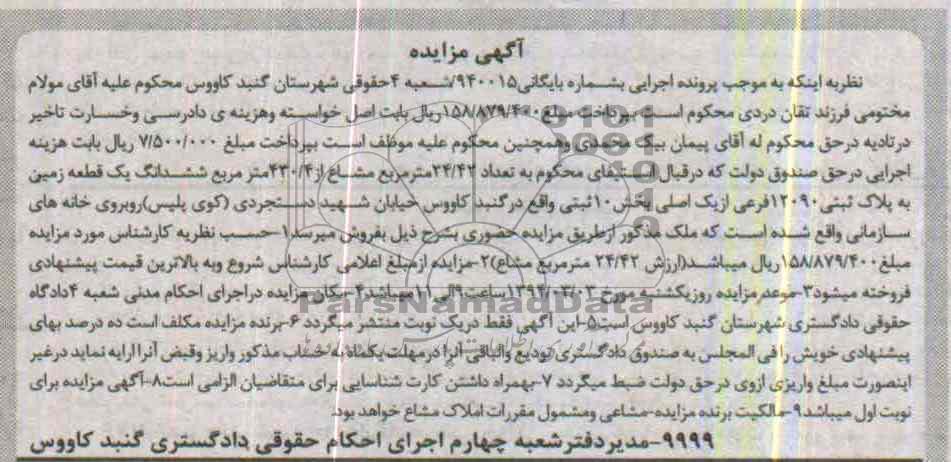 آگهی مزایده
نظربه اینکه به موجب پرونده اجرایی بشماره بایگانی۹۴۰۰۱۵/شعبه ۴حقوقی شهرستان گنبد کاووس محکوم علیه آقای مولام
مختومی فرزند تقان دردی محکوم است بپرداخت مبلغ۱۵۸/۸۷۹/۴۰۰ریال بابت اصل خواسته وهزینه ی دادرسی وخسارت تاخیر
درتادیه درحق محکوم له آقای پیمان بیک محمدی وهمچنین محکوم علیه موظف است بپرداخت مبلغ ۷/۵۰۰/۰۰۰ ریال بابت هزینه
اجرایی درحق صندوق دولت که درقبال استیفای محکوم به تعداد ۲۴/۴۲مترمربع مشاع از۴۳۰/۴متر مربع ششدانگ یک قطعه زمین
به پلاک ثبتی۱۲۰۹۰فرعی ازیک اصلی بخش۱۰ثبتی واقع درگنبد کاووس خیابان شهید دستجردی (کوی پلیس)روبروی خانه های
سازمانی واقع شده است که ملک مذکور ازطریق مزایده حضوری بشرح ذیل بفروش میرسد۱-حسب نظریه کارشناس مورد مزایده
مبلغ۱۵۸/۸۷۹/۴۰۰ریال میباشد(ارزش ۲۴/۴۲ مترمربع مشاع)۲-مزایده ازمبلغ اعلامی کارشناس شروع وبه بالاترین قیمت پیشنهادی
فروخته میشود۳-موعدمزایده روزیکشنبه مورخ ۱۳۹۴/۰۳/۰۳ساعت۹الی۱۱میباشد۴-مکان مزایده دراجرای احکام مدنی شعبه ۴دادگاه
حقوقی دادگستری شهرستان گنبد کاووس است۵-این آگهی فقط دریک نوبت منتشر میگردد ۶-برنده مزایده مکلف است ده درصد بهای
پیشنهادی خویش را فی المجلس به صندوق دادگستری تودیع والباقی آنرا درمهلت یکماه به حساب مذکور واریز وقبض آنرا ارایه نماید درغیر
اینصورت مبلغ واریزی ازوی درحق دولت ضبط میگردد ۷-بهمراه داشتن کارت شناسایی برای متقاضیان الزامی است۸-آگهی مزایده برای
نوبت اول میباشد۹-مالکیت برنده مزایده-مشاعی ومشمول مقررات املاک مشاع خواهد بود.
۹۹۹۹-مدیردفترشعبه چهارم اجرای احکام حقوقی دادگستری گنبد کاووس
ParsNamadData